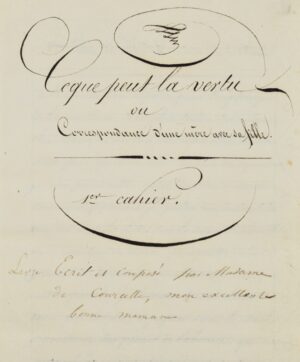 Ce que peut la vertu
ou
Correspondance d'une mère avec sa fille.
1er cahier.
Ecrit et composé par Madame
de
mon excellente
bonne maman